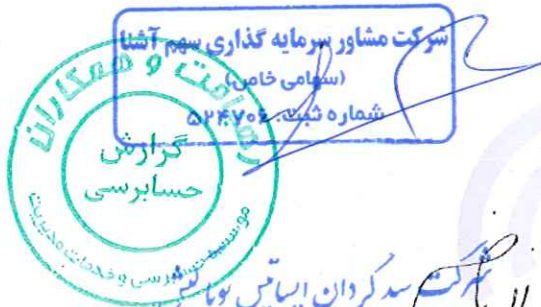 شرکت مشاور سرمایه گذاری سهم آشنا
(سهامی خاص)
شماره ثبت: ۵۲۴۷۰۶
و همکاران
گزارش
حسابرسی
موسسه حسابرسی و خدمات مدیریت
شرکت سبدگردان ایساتیس پویا کیش